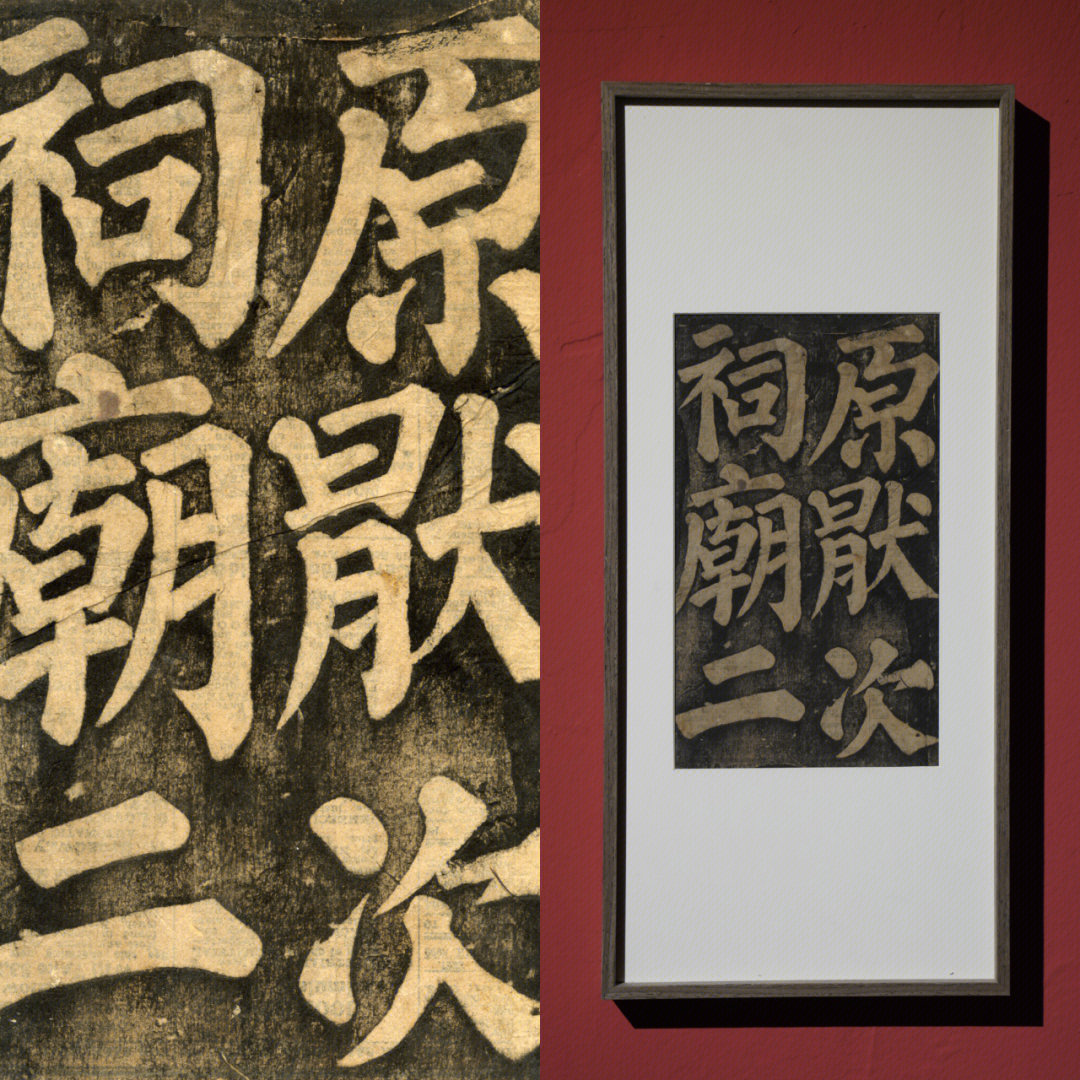 原猒次
祠廟二
原猒次
祠廟二